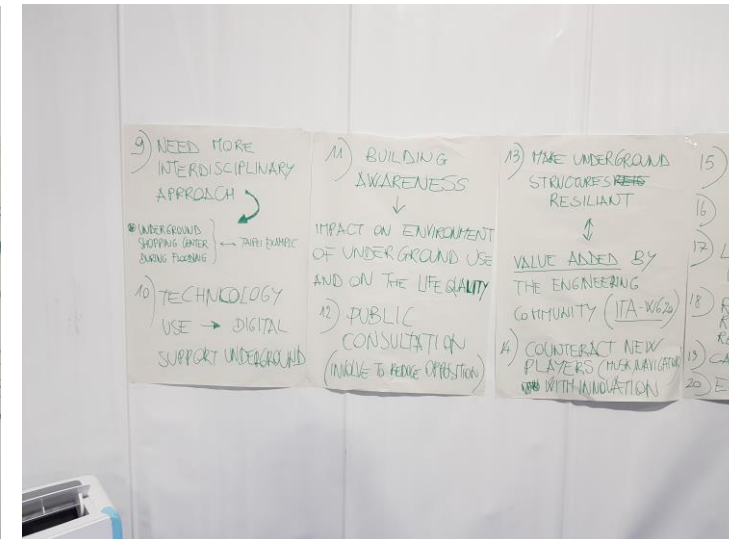 9) NEED MORE
INTERDISCIPLINARY
APPROACH
UNDERGROUND
SHOPPING CENTER
DURING FLOODING
↔ TAIPEI EXAMPLE
10) TECHNOLOGY
USE → DIGITAL
SUPPORT UNDERGROUND
11) BUILDING
AWARENESS
↓
IMPACT ON ENVIRONMENT
OF UNDERGROUND USE
AND ON THE LIFE QUALITY
12) PUBLIC
CONSULTATION
(INVOLVE TO REDUCE OPPOSITION)
13) MAKE UNDERGROUND
STRUCTURES
RESILIANT
↕
VALUE ADDED BY
THE ENGINEERING
COMMUNITY (ITA-WG20)
14) COUNTERACT NEW
PLAYERS (MUSK, NAVIGATOR
WITH INNOVATION
15)
16)
17) L
18) R
R
RE
19) CA
20) E